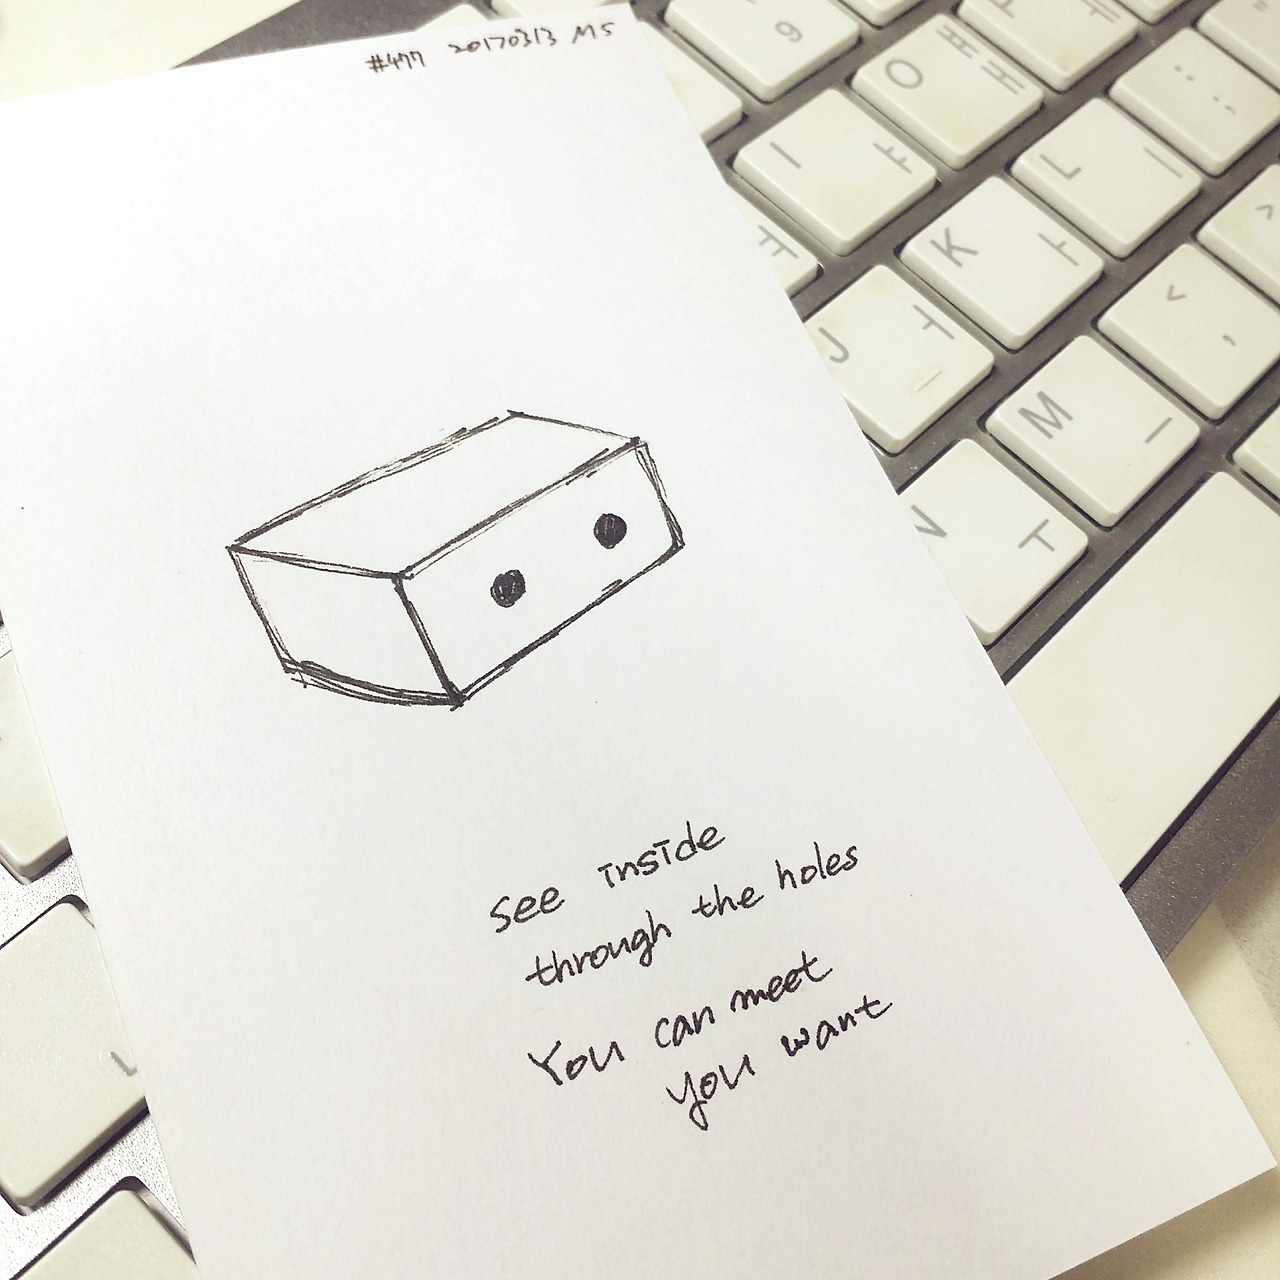 #477 20170313 MS
see inside
through the holes
You can meet
you want
9
O ㅐ ㅒ
I ㅑ
L ㅣ
K ㅏ
J ㅓ
M ㅡ
N ㅜ
ㅠ